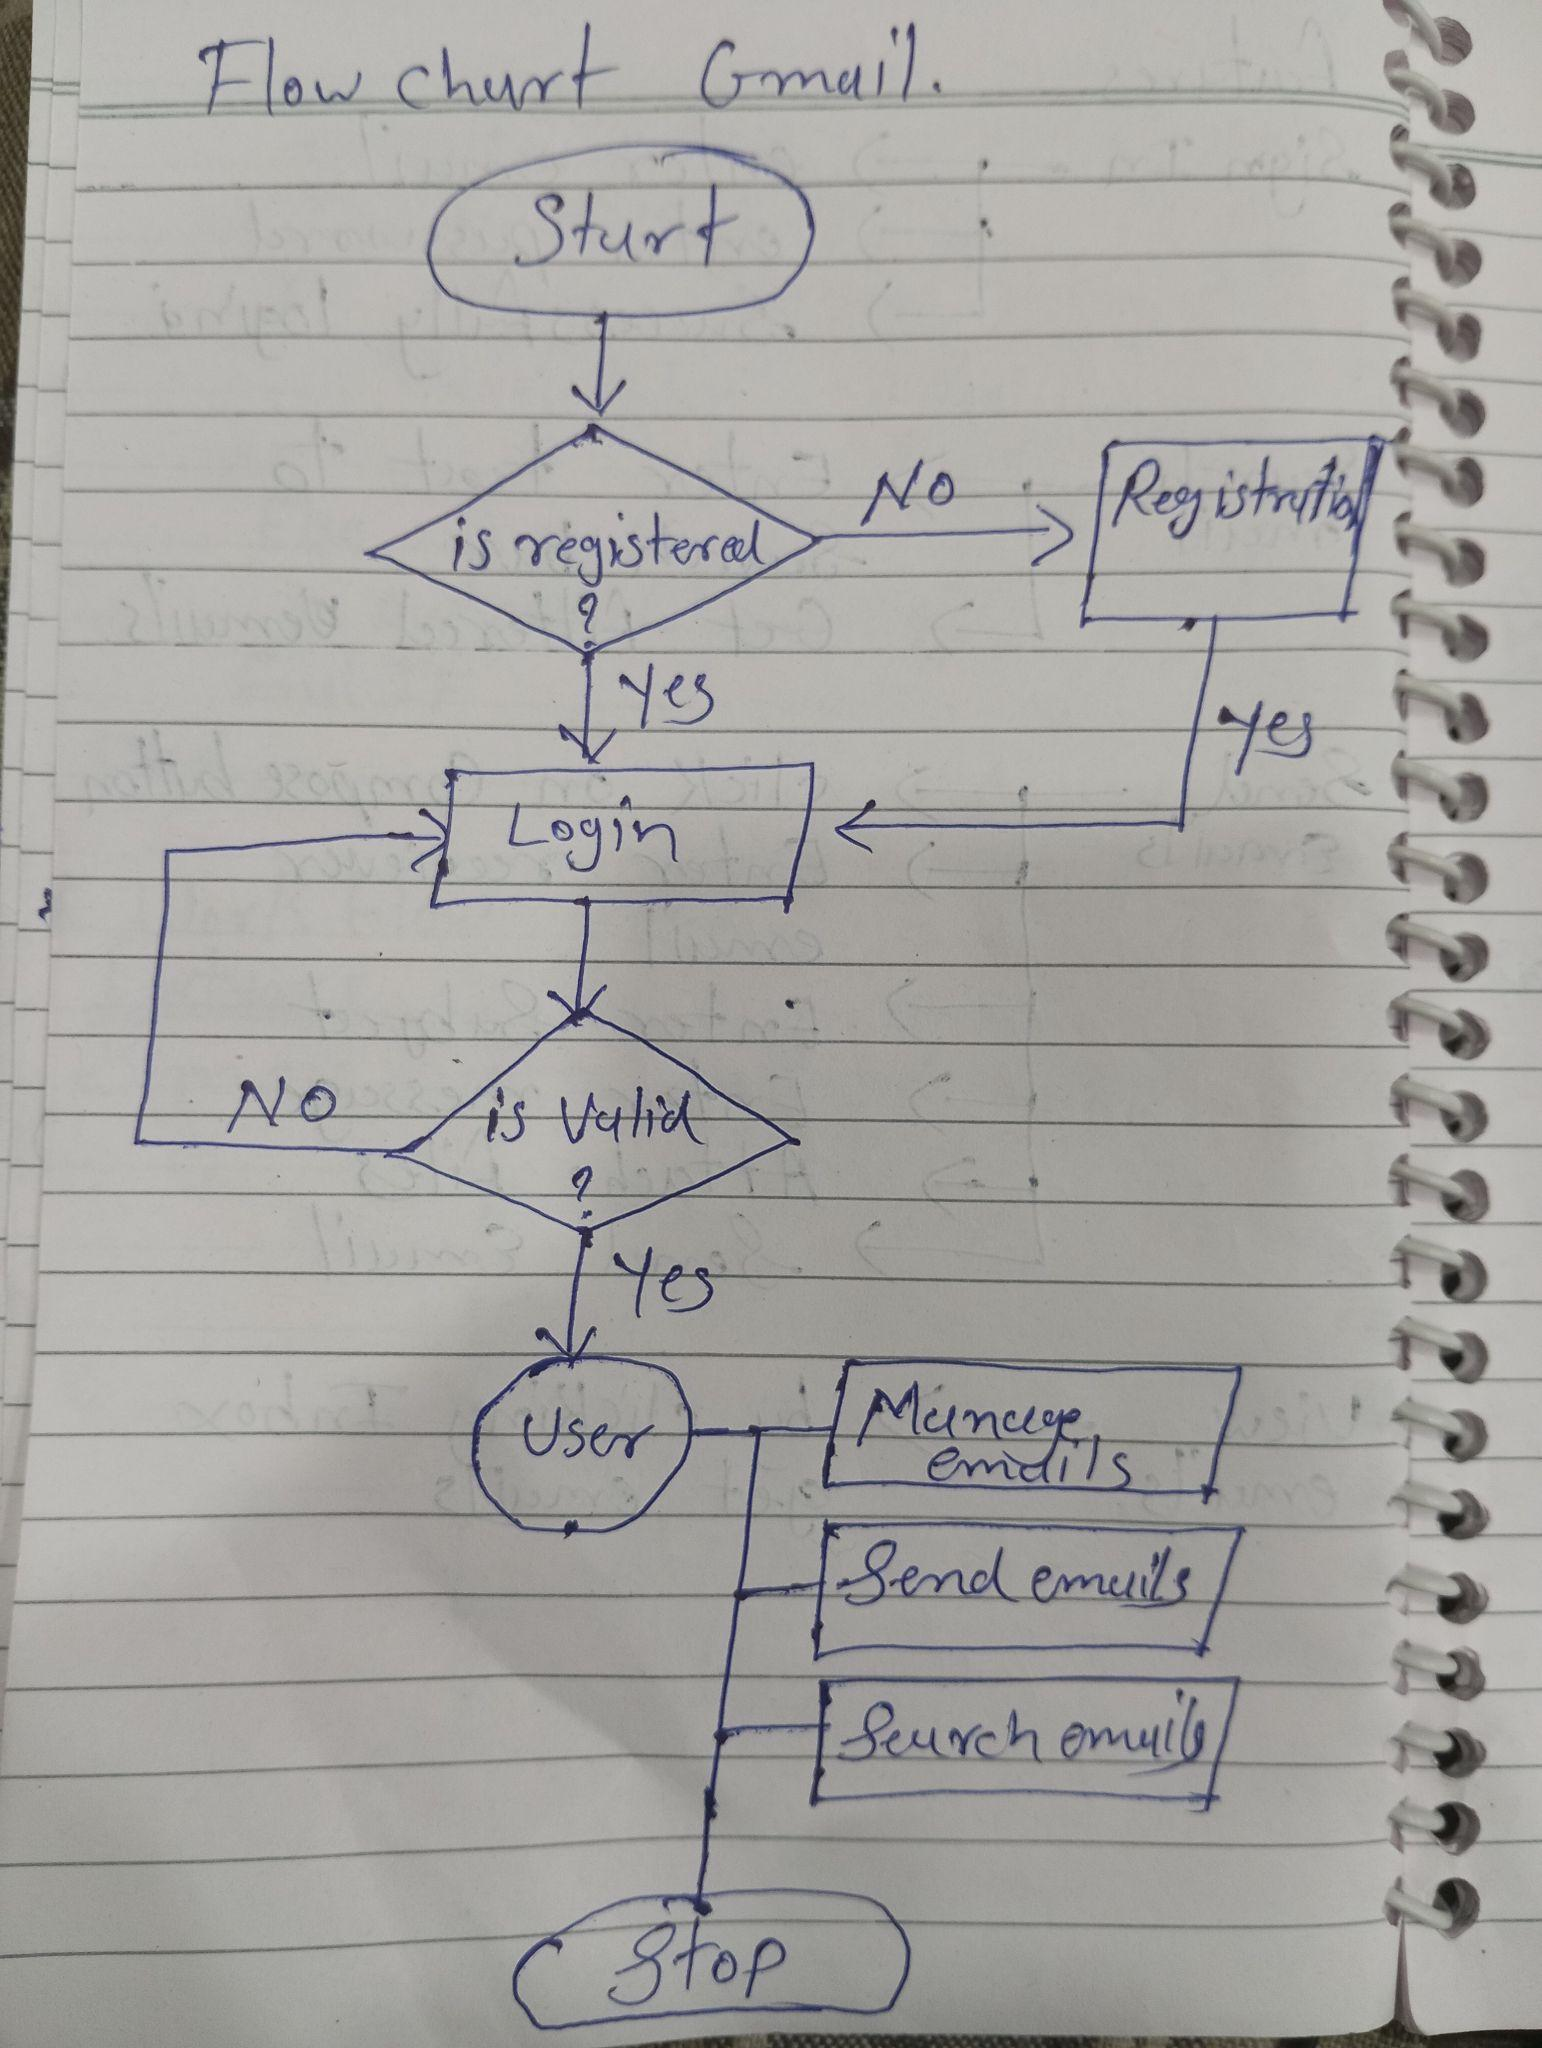 Flow chart Gmail.
Start
is registered
?
NO
Registration
Yes
Yes
Login
NO
is Valid
?
Yes
User
Manage
emails
Send emails
Search emails
Stop